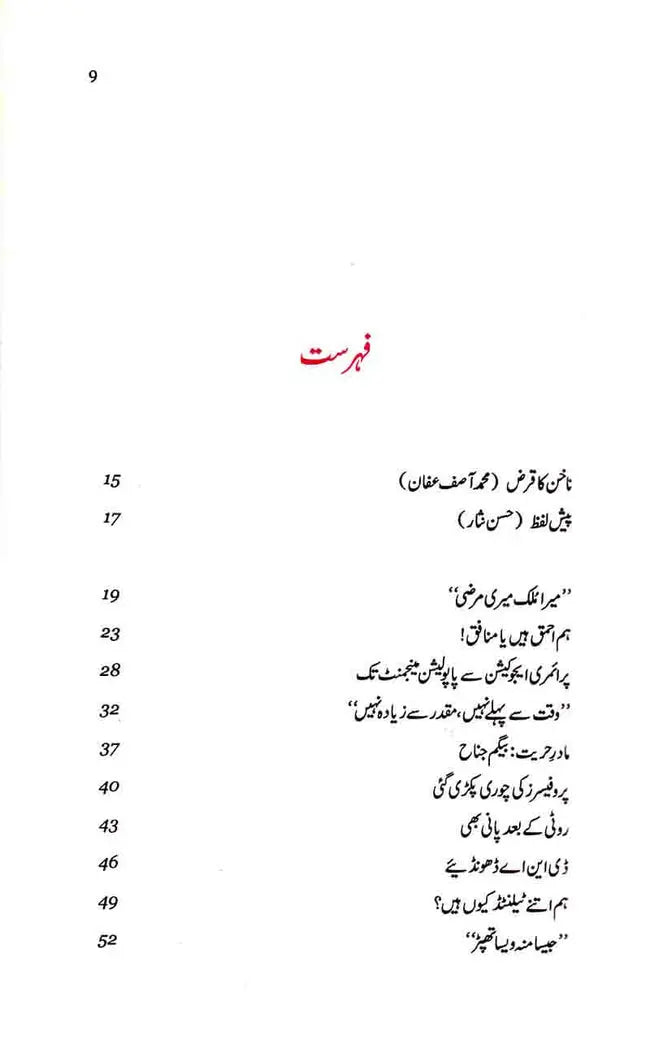 9
فہرست
ناخن کا قرض (محمد آصف عفان) 15
پیش لفظ (حسن نثار) 17
”میرا ملک میری مرضی“ 19
ہم احمق ہیں یا منافق! 23
پرائمری ایجوکیشن سے پاپولیشن مینجمنٹ تک 28
”وقت سے پہلے نہیں، مقدر سے زیادہ نہیں“ 32
مادرِ حریت: بیگم جناح 37
پروفیسرز کی چوری پکڑی گئی 40
روٹی کے بعد پانی بھی 43
ڈی این اے ڈھونڈیئے 46
ہم اتنے ٹیلنٹڈ کیوں ہیں؟ 49
”جیسا منہ ویسا تھپڑ“ 52